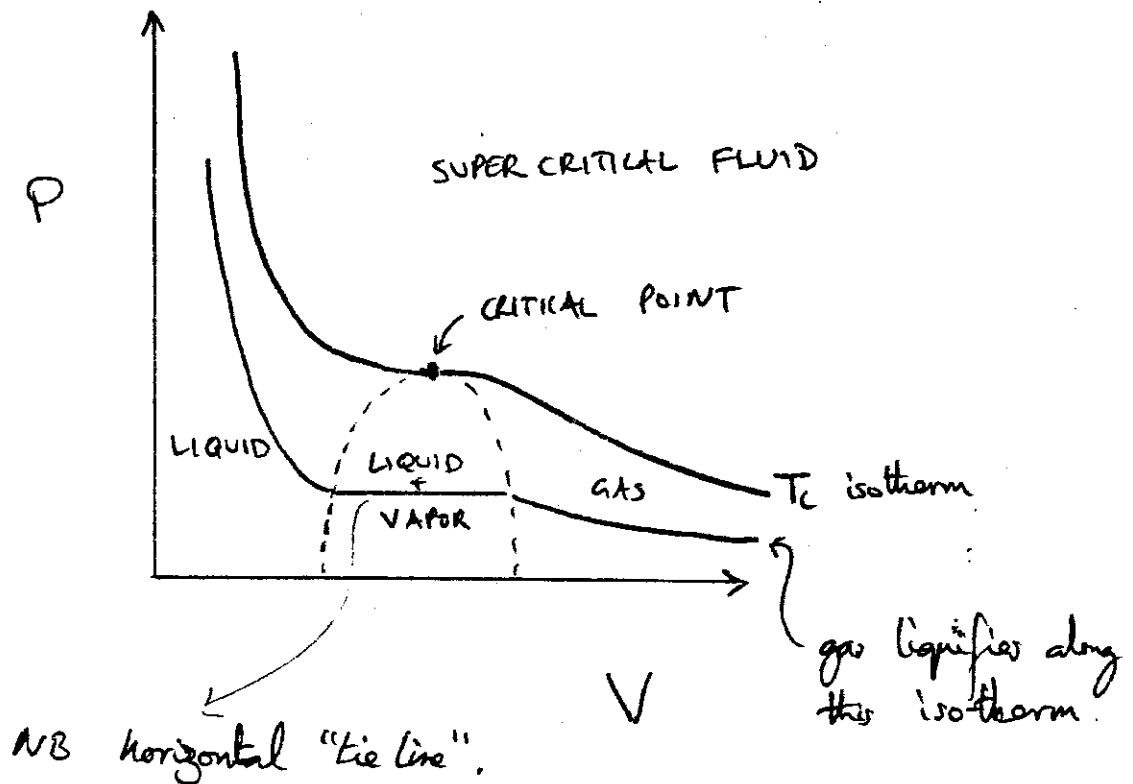 P
SUPER CRITICAL FLUID
CRITICAL POINT
LIQUID
LIQUID
+
VAPOR
GAS
Tc isotherm
gas liquifies along
this isotherm.
V
NB horizontal "tie line".